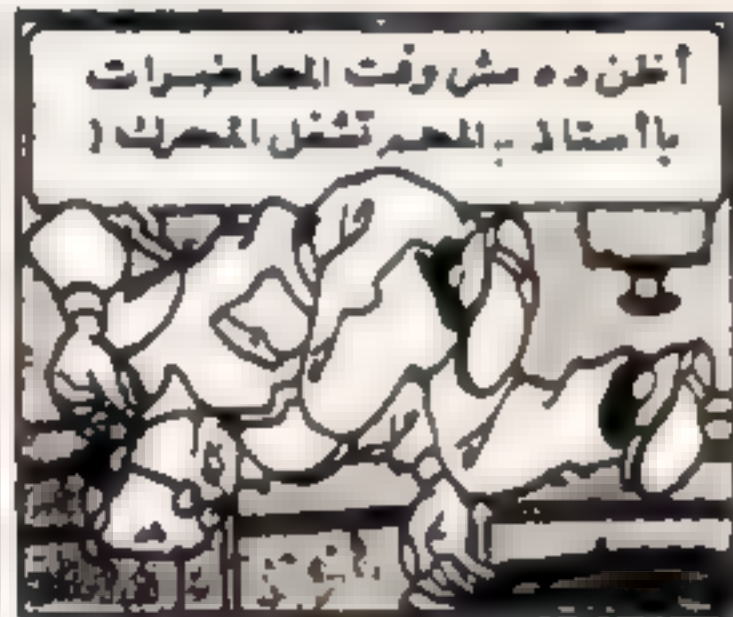 أظن ده مش وقت المحاضرات
يا أستاذ .. المهم تشغل المحرك (